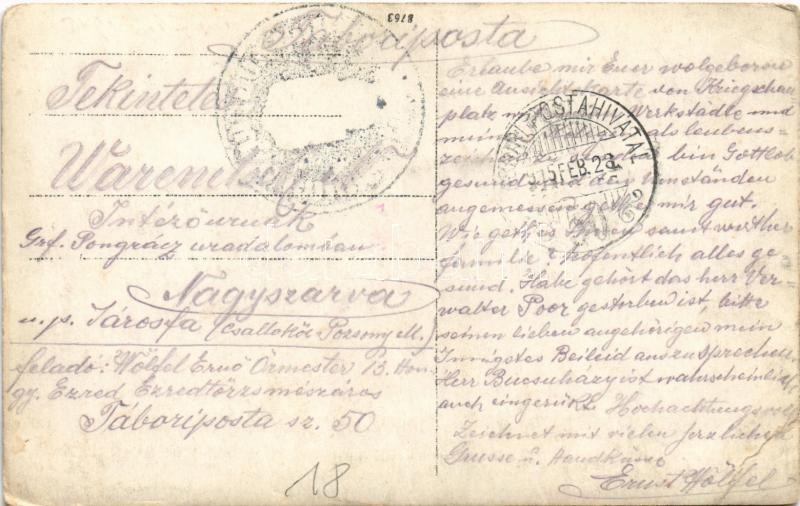 8763
Táboriposta
Tekintetes
Intéző urnak
Grf. Pongrácz uradalomban
Nagyszarva
u. p. Járosfa (Csallóköz Pozsony M.)
feladó: Wölfel Ernő Örmester 13. Hon-
gy. Ezred Ezredtörzsmészáros
Táboriposta sz. 50
18
TÁBORI POSTAHIVATAL
915 FEB. 28
Erlaube mir Euer wolgeborne
eine Ansichtskarte von Kriegschau
platz Werkstädte und
als leubens-
bin Gottlob
gesund und den Umständen
angemessen geht es mir gut.
Wie geht es Ihnen samt werther
familie? hofentlich alles ge-
sund. Habe gehört das herr Ver-
walter Poor gestorben ist, bitte
seinen lieben angehörigen mein
Innigstes Beileid auszusprechen,
Herr Bucsuházy ist wahrscheinlich
auch eingerückt. Hochachtungsvoll
Zeichnet mit vielen herzlichen
Grusse u. Handküsse
Ernst Wölfel